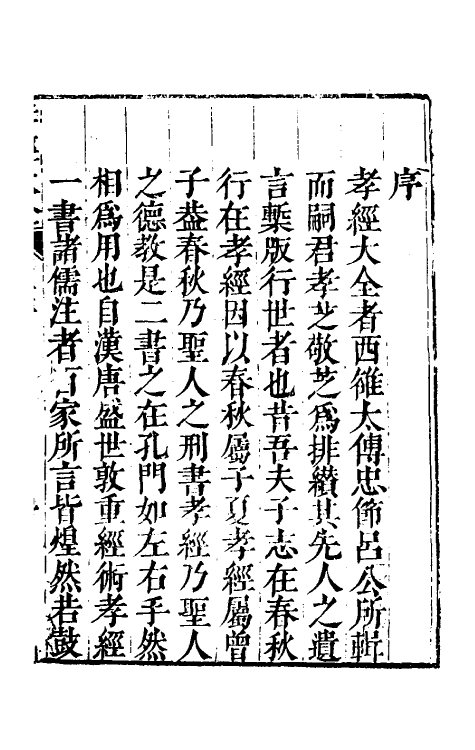 序
孝經大全者西雒太傅忠節呂公所輯
而嗣君孝芝敬芝爲排纘其先人之遺
言槧版行世者也昔吾夫子志在春秋
行在孝經因以春秋屬子夏孝經屬曾
子葢春秋乃聖人之刑書孝經乃聖人
之德教是二書之在孔門如左右手然
相爲用也自漢唐盛世敦重經術孝經
一書諸儒注者百家所言皆煌然若鼓